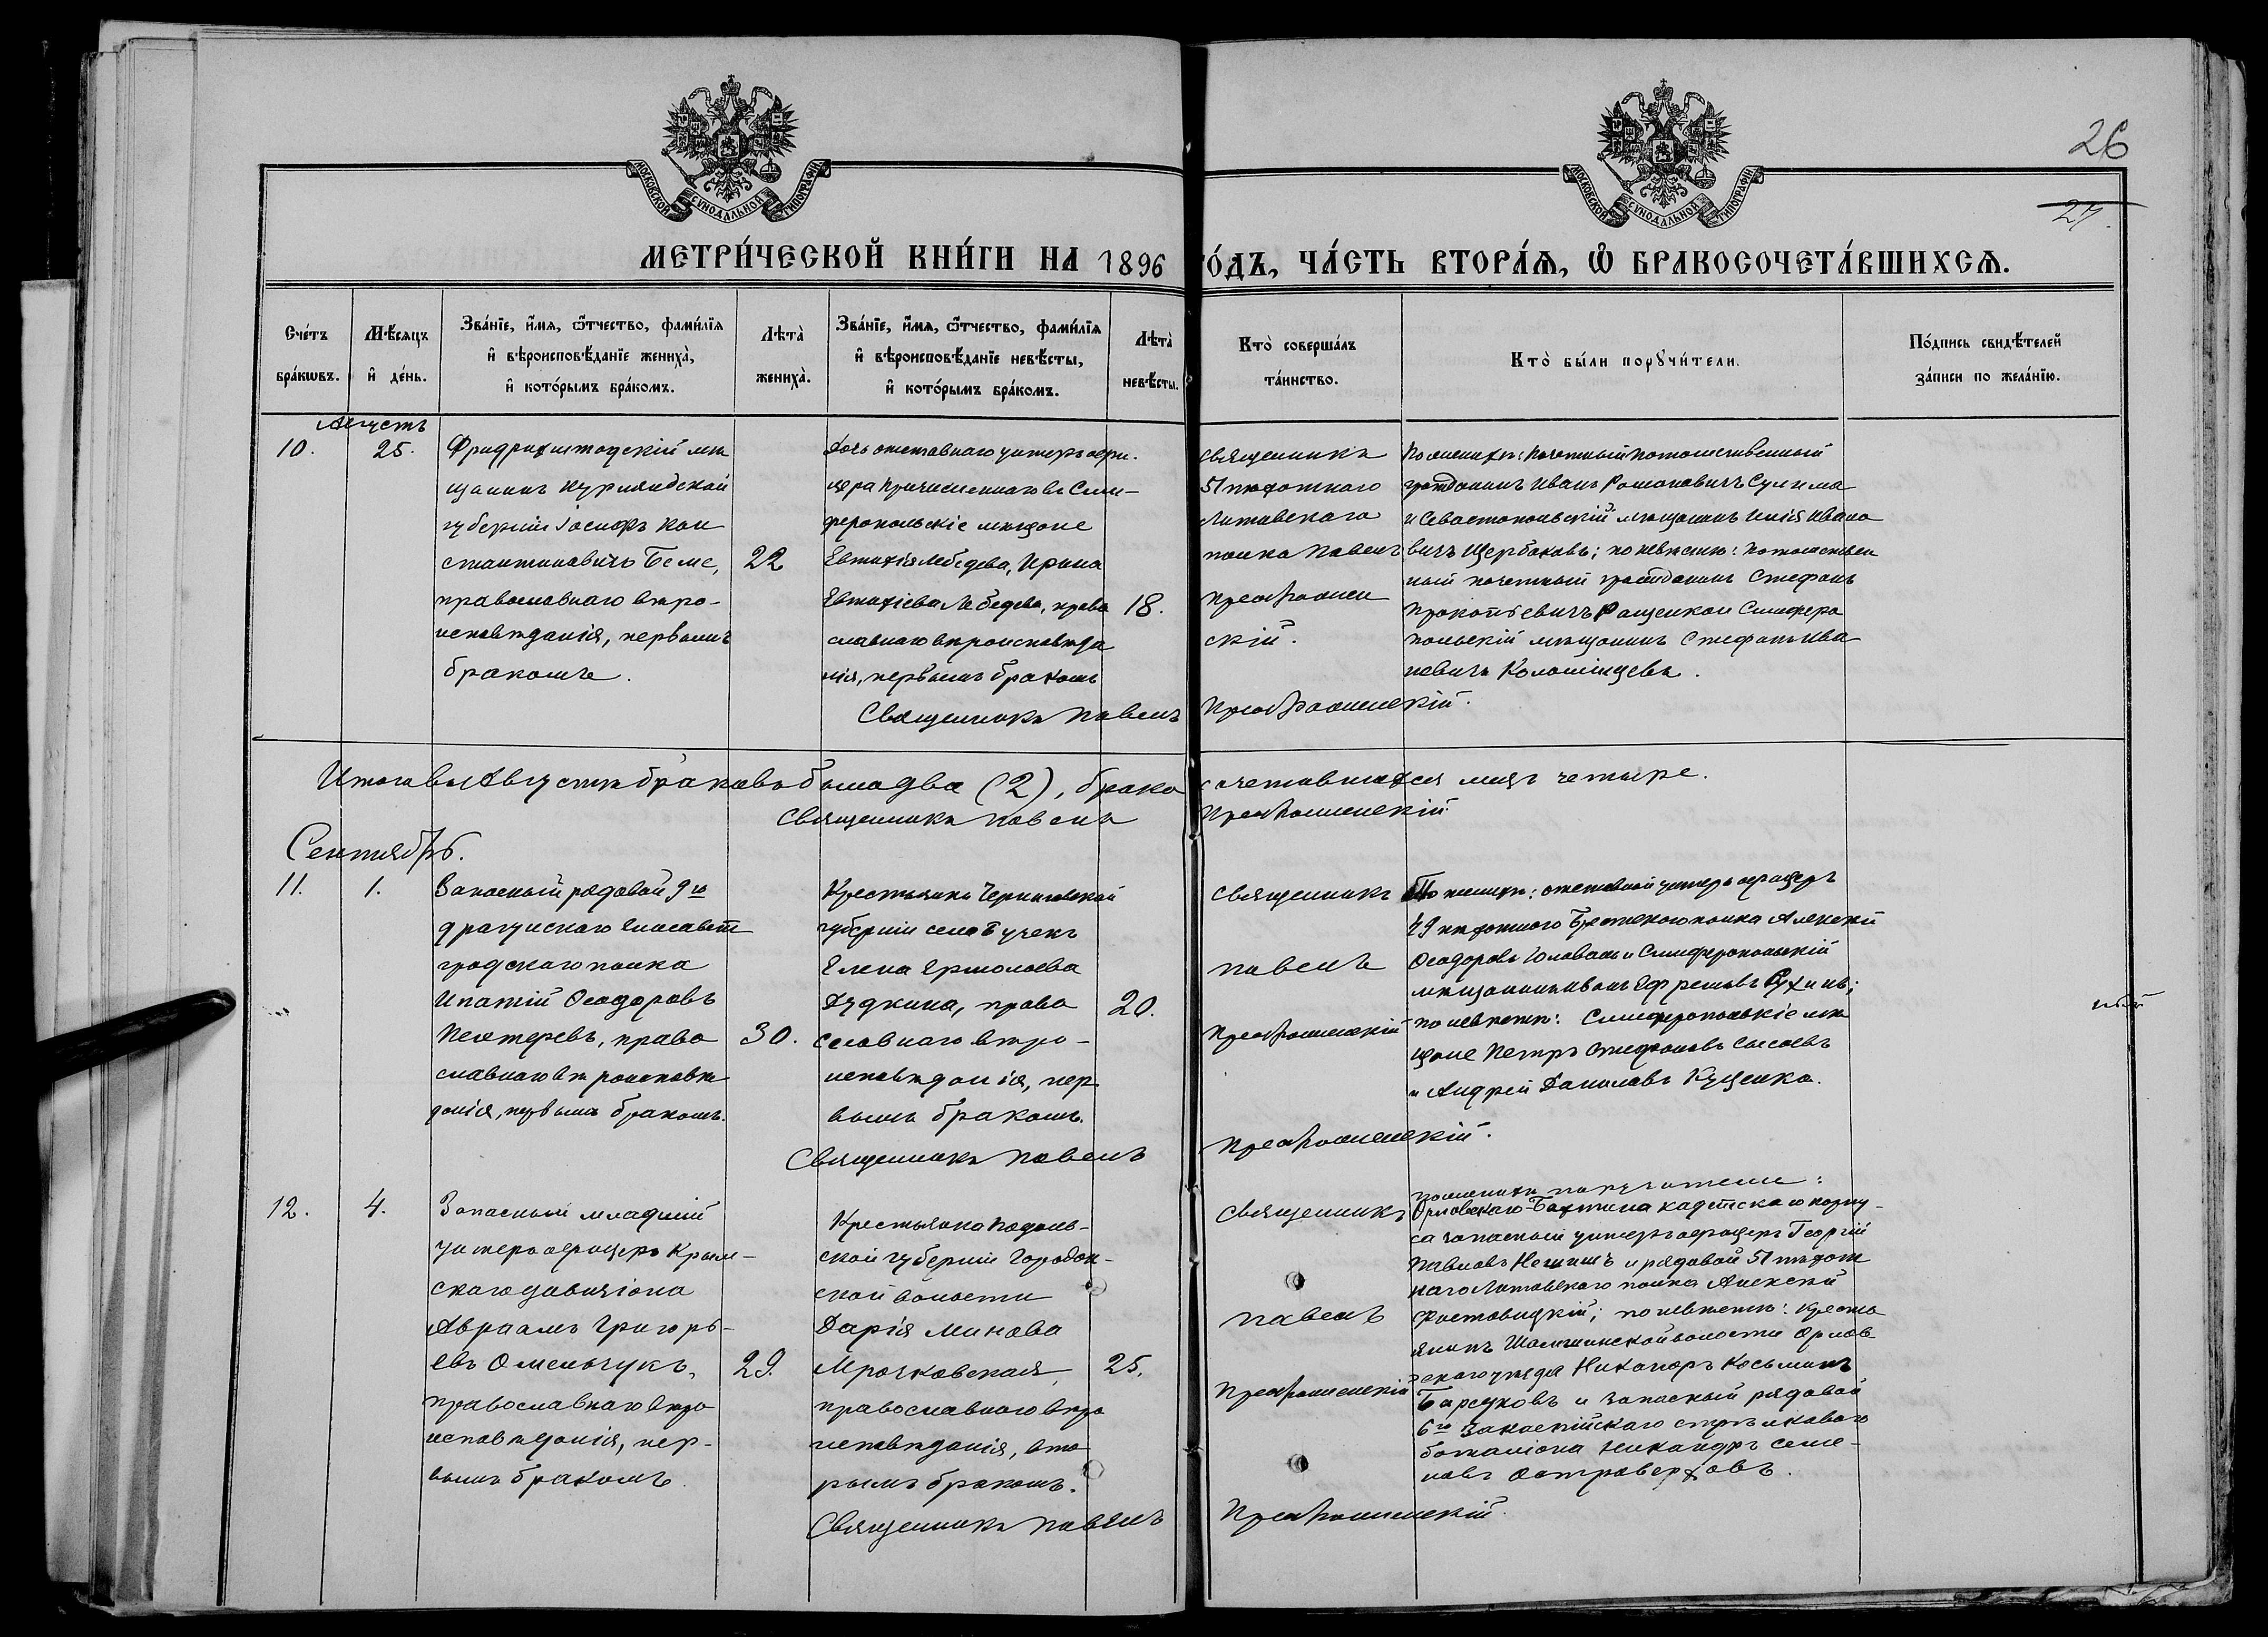 26
27.
МОСКОВСКОЙ СѴНОДАЛЬНОЙ ТИПОГРАФІИ
МОСКОВСКОЙ СѴНОДАЛЬНОЙ ТИПОГРАФІИ
МЕТРИ́ЧЕСКОЙ КНИ́ГИ НА 1896 ГО́ДЪ, ЧА́СТЬ ВТОРА́Ѧ, Ѽ БРАКОСОЧЕТА́ВШИХСѦ.
Сче́тъ
бра́кѡвъ.
Мѣ́сяцъ
и҆ де́нь.
Зва́нїе, и҆́мѧ, ѻ҆́тчество, фами́лїѧ
и҆ вѣроисповѣ́данїе жениха̀,
и҆ кото́рымъ бра́комъ.
Лѣта̀
жениха̀.
Зва́нїе, и҆́мѧ, ѻ҆́тчество, фами́лїѧ
и҆ вѣроисповѣ́данїе невѣ́сты,
и҆ кото́рымъ бра́комъ.
Лѣта̀
невѣ́сты.
Кто̀ соверша́лъ
та́инство.
Кто̀ бы́ли порꙋчи́тели.
По́дпись свидѣ́телей
за́писи по жела́нїю.
Августъ
10.
25.
Фридрихштадскій мѣ
щанинъ Курляндской
губерніи Іосифъ Кон
стантиновичъ Беме,
православнаго вѣро-
исповѣданія, первымъ
бракомъ.
22
Дочь отставнаго унтеръ офи-
цера причисленнаго въ Сим-
феропольскіе мѣщане
Евтихія Лебедева, Ирина
Евтихіева Лебедева, право
славнаго вѣроисповѣда
нія, первымъ бракомъ
18.
Священникъ
51 пѣхотнаго
Литовскаго
полка Павелъ
Преображен
скій.
По женихѣ: Почетный потомственный
гражданинъ Иванъ Романовичъ Сулима
и Севастопольскій мѣщанинъ Илія Ивано
вичъ Щербаковъ; по невѣстѣ: потомствен
ный почетный гражданинъ Стефанъ
Прокопьевичъ и Симферо
польскій мѣщанинъ Стефанъ Ива
новичъ Коломійцевъ.
Священникъ Павелъ Преображенскій.
Итого въ Августѣ браковъ было два (2), брако сочетавшихся лицъ четыре.
Священникъ Павелъ Преображенскій.
Сентябрь.
11.
1.
Запасный рядовой 9го
драгунскаго Елисавет
градскаго полка
Ипатій Ѳеодоровъ
Пехтеревъ, право
славнаго вѣроисповѣ
данія, первымъ бракомъ.
30.
Крестьянка Черниговской
губерніи села Бучекъ
Елена Ермолаева
Дудкина, право
славнаго вѣро-
исповѣданія, пер
вымъ бракомъ.
20.
Священникъ
Павелъ
Преображенскій
По женихѣ: отставной унтеръ офицеръ
49 пѣхотнаго Брестскаго полка Алексѣй
Ѳеодоровъ Головань и Симферопольскій
мѣщанинъ Иванъ Ефремовъ
по невѣстѣ: Симферопольскіе мѣ
щане Петръ Стефановъ Сысоевъ
и Андрей Даниловъ Куценко.
Священникъ Павелъ Преображенскій.
12.
4.
Запасный младшій
унтеръ офицеръ Крым-
скаго дивизіона
Авраамъ Григорь-
евъ Омельчукъ,
православнаго вѣро
исповѣданія, пер-
вымъ бракомъ.
29.
Крестьянка Подоль-
ской губерніи Городок-
ской волости
Дарія Минова
Мрочковская,
православнаго вѣро
исповѣданія, вто
рымъ бракомъ.
25.
Священникъ
Павелъ
Преображенскій
по женихѣ поручители:
Орловскаго-Бахтина кадетскаго корпу-
са запасный унтеръ офицеръ Георгій
Павловъ и рядовой 51 пѣхот
наго Литовскаго полка Алексѣй
по невѣстѣ: кресть
янинъ волости Орлов
скаго уѣзда Никаноръ Косьминъ
Барсуковъ и запасный рядовой
6го Закаспійскаго стрѣлковаго
баталіона Никандръ Семе-
новъ Островерховъ.
Священникъ Павелъ Преображенскій.